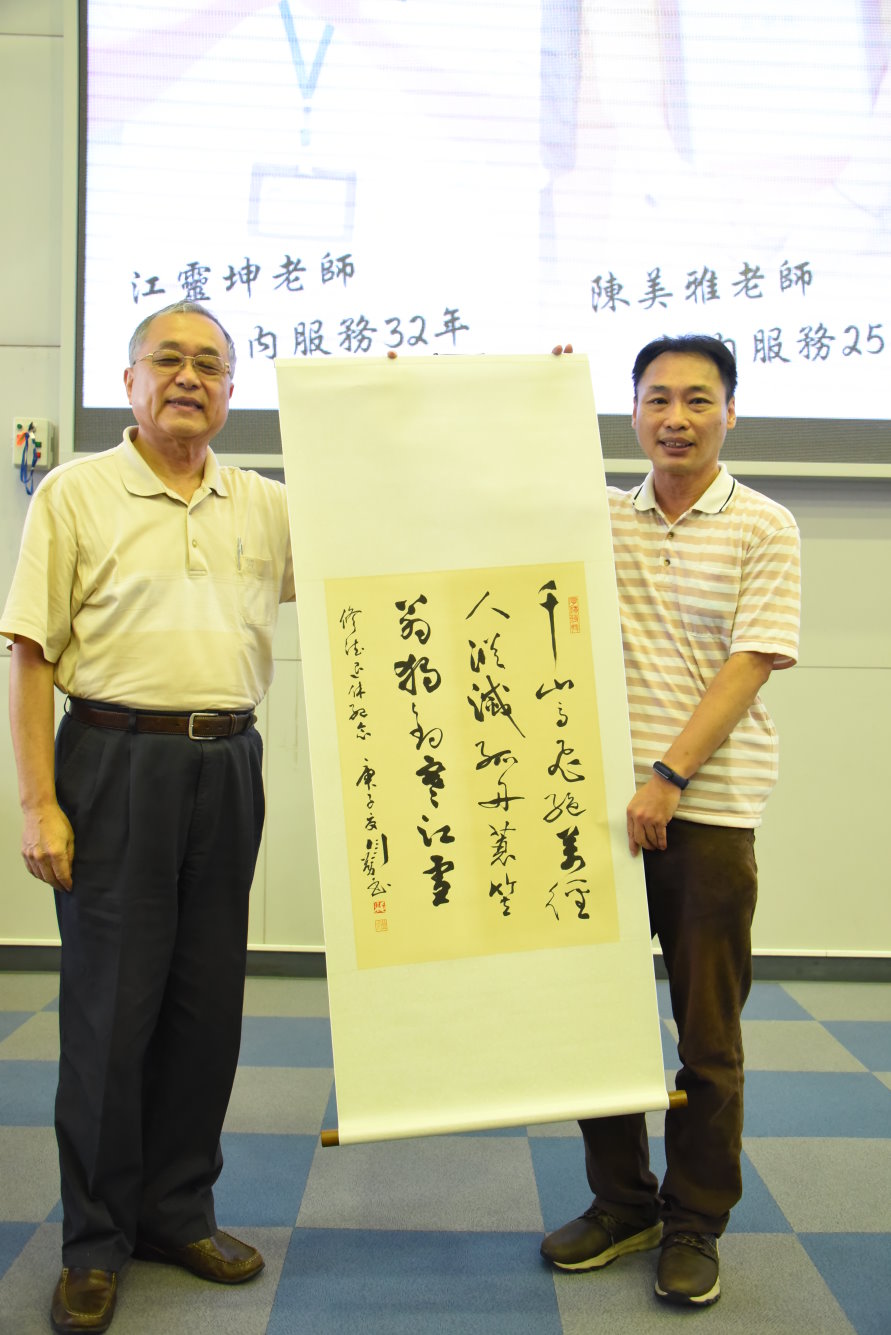 江靈坤老師
內服務32年
陳美雅老師
內服務25
千山鳥飛絕萬徑
人蹤滅孤舟蓑笠
翁獨釣寒江雪
退休紀念 庚子夏